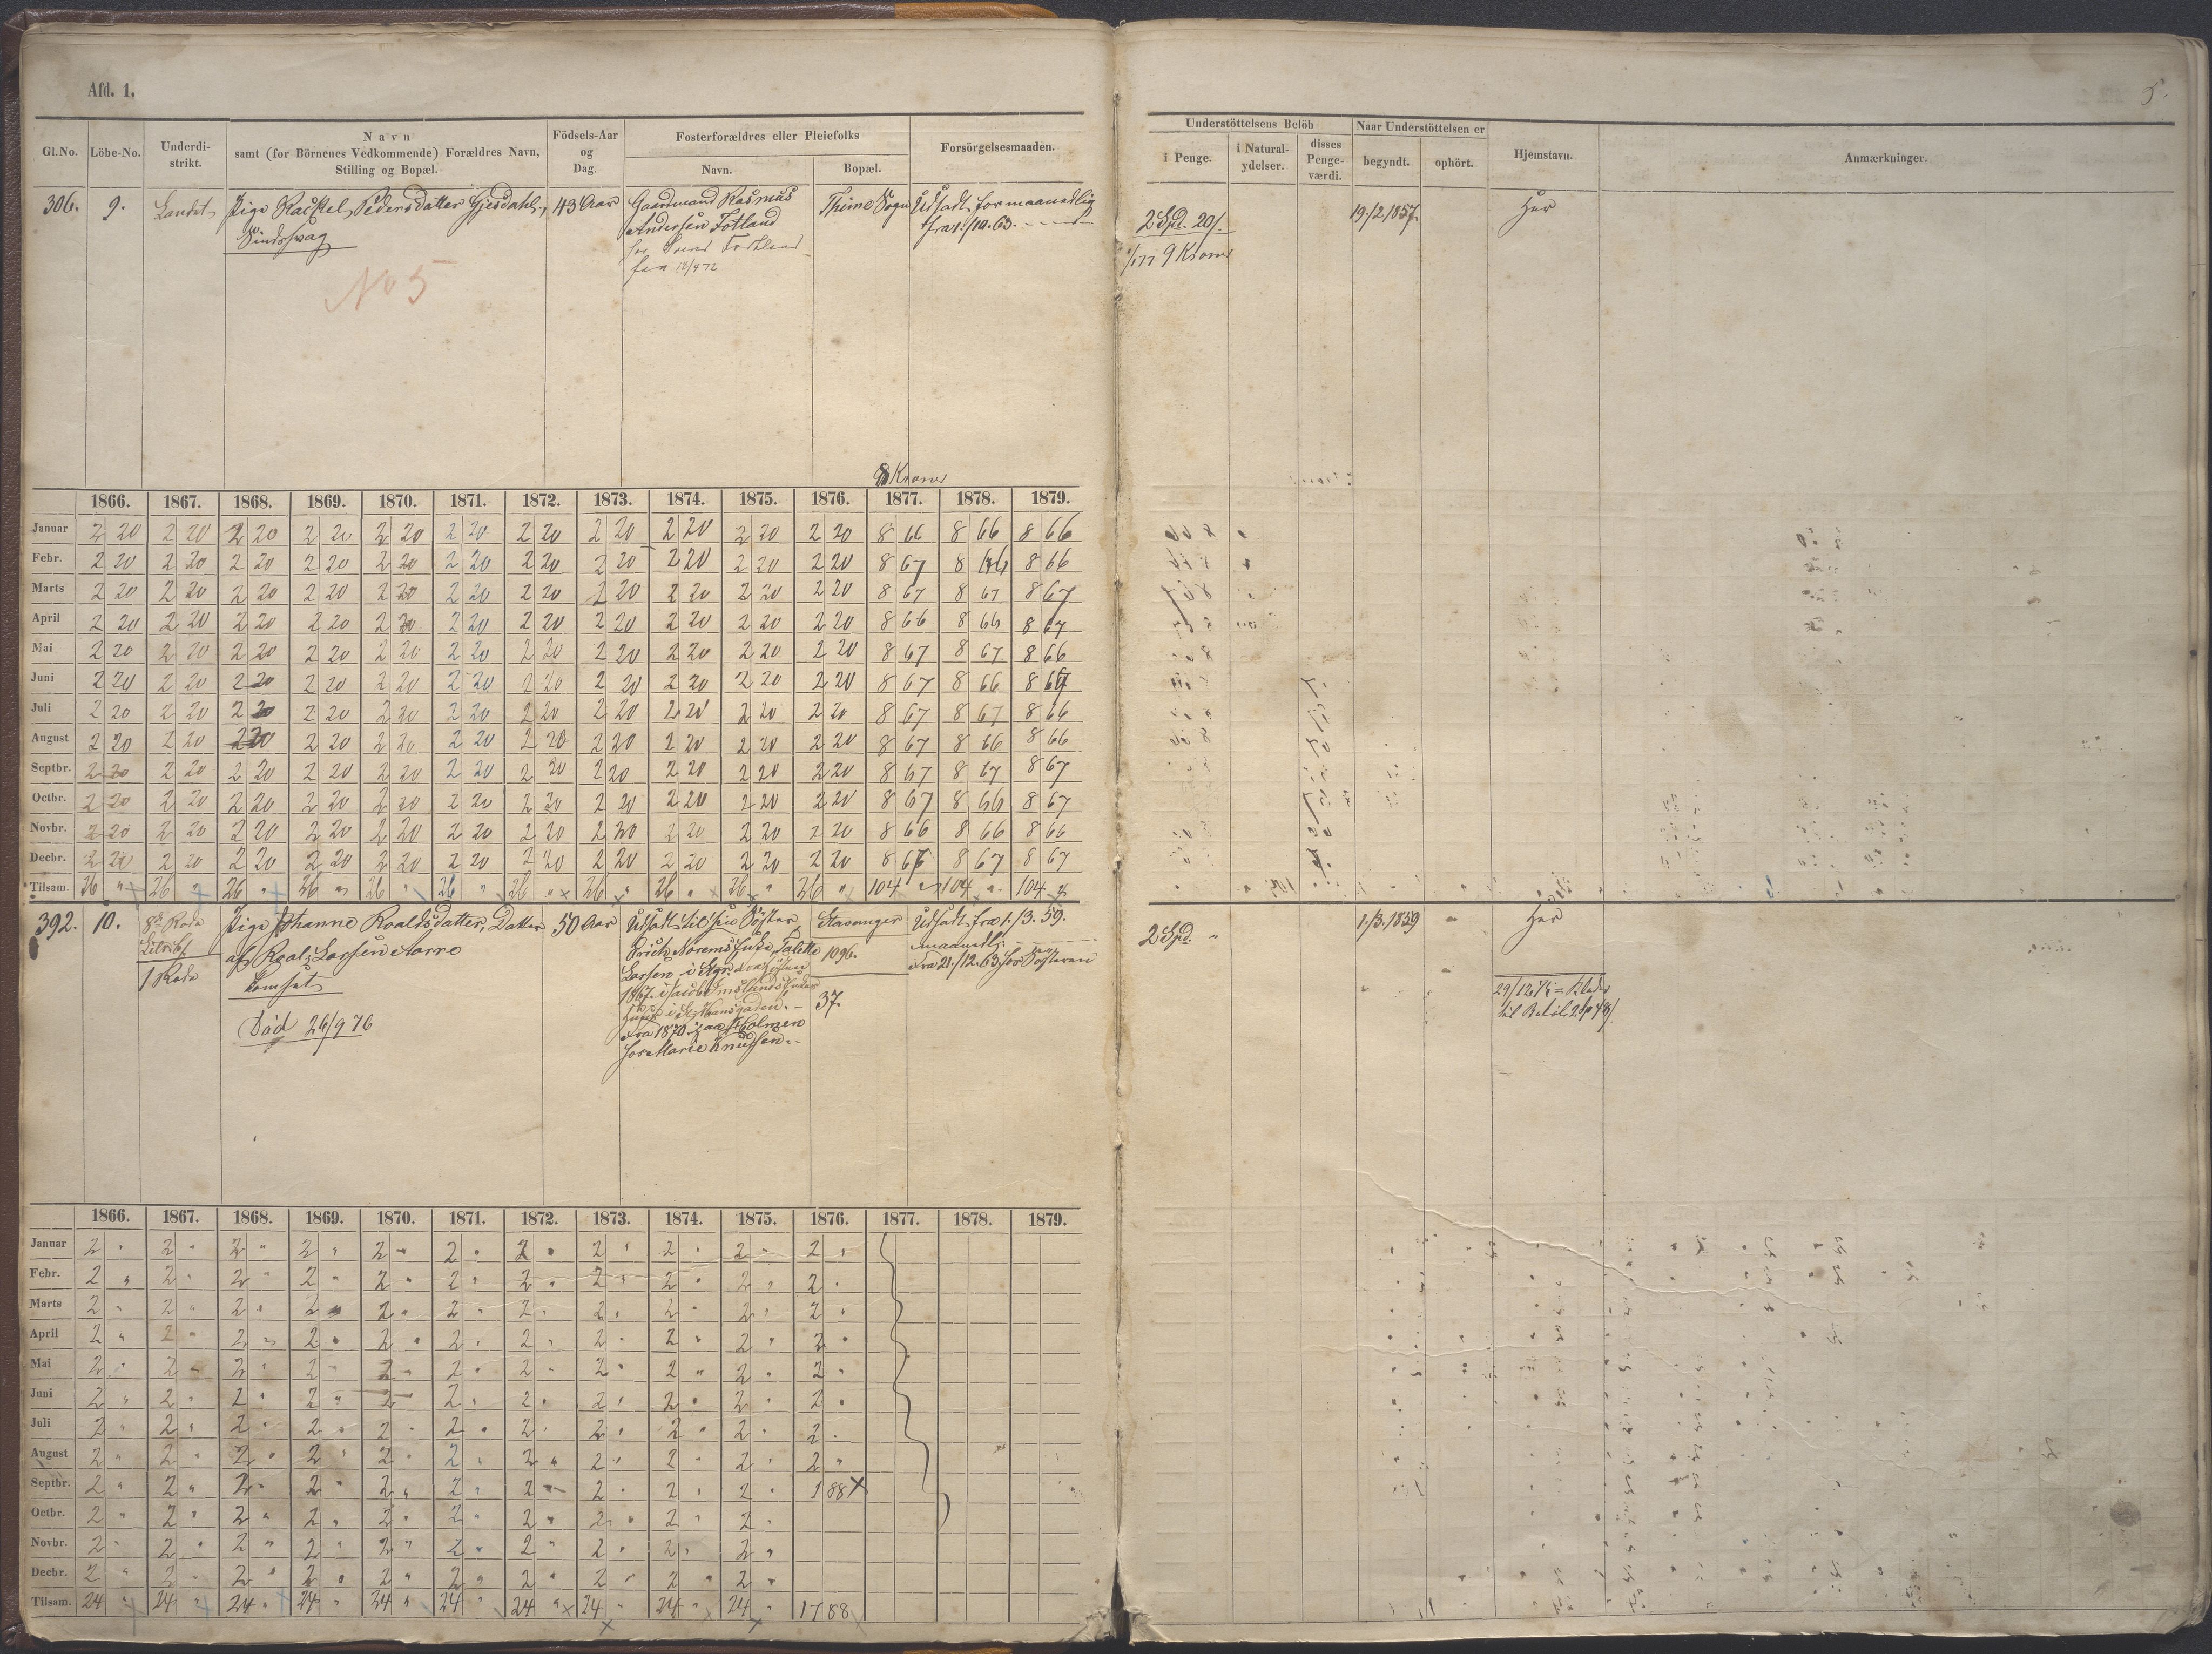 Afd. 1.
5.
Gl.No. Löbe-No. Underdi-strikt. Navn samt (for Börnenes Vedkommende) Forældres Navn, Stilling og Bopæl. Födsels-Aar og Dag. Fosterforældres eller Pleiefolks Navn. Bopæl. Forsörgelsesmaaden.
Understöttelsens Belöb i Penge. i Natural-ydelser. disses Penge-værdi. Naar Understöttelsen er begyndt. ophört. Hjemstavn. Anmærkninger.
306. 9. Landet Pige Rachel Pedersdatter Gjesdahl, 43 Aar Gaardmand Rasmus Thime Sogn Udsadt for maanedlig 2 Spd. 20 19/2 1857. Her
Andersen Fotland fra 1/10. 63.
fra 18/4 72
9 Kroner
No 5
8 Kroner
1866. 1867. 1868. 1869. 1870. 1871. 1872. 1873. 1874. 1875. 1876. 1877. 1878. 1879.
Januar 2 20 2 20 2 20 2 20 2 20 2 20 2 20 2 20 2 20 2 20 2 20 8 66 8 66 8 66
Febr. 2 20 2 20 2 20 2 20 2 20 2 20 2 20 2 20 2 20 2 20 2 20 8 67 8 66 8 66
Marts 2 20 2 20 2 20 2 20 2 20 2 20 2 20 2 20 2 20 2 20 2 20 8 67 8 67 8 67
April 2 20 2 20 2 20 2 20 2 20 2 20 2 20 2 20 2 20 2 20 2 20 8 66 8 66 8 67
Mai 2 20 2 20 2 20 2 20 2 20 2 20 2 20 2 20 2 20 2 20 2 20 8 67 8 67 8 66
Juni 2 20 2 20 2 20 2 20 2 20 2 20 2 20 2 20 2 20 2 20 2 20 8 67 8 66 8 67
Juli 2 20 2 20 2 20 2 20 2 20 2 20 2 20 2 20 2 20 2 20 2 20 8 67 8 67 8 66
August 2 20 2 20 2 20 2 20 2 20 2 20 2 20 2 20 2 20 2 20 2 20 8 67 8 66 8 66
Septbr. 2 20 2 20 2 20 2 20 2 20 2 20 2 20 2 20 2 20 2 20 2 20 8 67 8 67 8 67
Octbr. 2 20 2 20 2 20 2 20 2 20 2 20 2 20 2 20 2 20 2 20 2 20 8 67 8 66 8 67
Novbr. 2 20 2 20 2 20 2 20 2 20 2 20 2 20 2 20 2 20 2 20 2 20 8 66 8 66 8 66
Decbr. 2 20 2 20 2 20 2 20 2 20 2 20 2 20 2 20 2 20 2 20 2 20 8 66 8 67 8 67
Tilsam. 26 " 26 " 26 " 26 " 26 " 26 " 26 " 26 " 26 " 26 " 26 " 104 " 104 " 104 "
392. 10. 8de Rode Pige Johanne Roaldsdatter, Datter 50 Aar Udsadt til sin Söster Stavanger Udsadt fra 1/3. 59. 2 Spd. " 1/3. 1859 " Her
af Roald Larsen Aarre 1096. maanedlig
1 Rode Larsen i Fra 21/12. 63 hos Sösteren
1867. 37.
Fra 1870 paa Holmen
hos Marie Knudsen.
Död 26/9 76
29/12 75 = Klæder
til Belöb
1866. 1867. 1868. 1869. 1870. 1871. 1872. 1873. 1874. 1875. 1876. 1877. 1878. 1879.
Januar 2 " 2 " 2 " 2 " 2 " 2 " 2 " 2 " 2 " 2 " 2 "
Febr. 2 " 2 " 2 " 2 " 2 " 2 " 2 " 2 " 2 " 2 " 2 "
Marts 2 " 2 " 2 " 2 " 2 " 2 " 2 " 2 " 2 " 2 " 2 "
April 2 " 2 " 2 " 2 " 2 " 2 " 2 " 2 " 2 " 2 " 2 "
Mai 2 " 2 " 2 " 2 " 2 " 2 " 2 " 2 " 2 " 2 " 2 "
Juni 2 " 2 " 2 " 2 " 2 " 2 " 2 " 2 " 2 " 2 " 2 "
Juli 2 " 2 " 2 " 2 " 2 " 2 " 2 " 2 " 2 " 2 " 2 "
August 2 " 2 " 2 " 2 " 2 " 2 " 2 " 2 " 2 " 2 " 2 "
Septbr. 2 " 2 " 2 " 2 " 2 " 2 " 2 " 2 " 2 " 2 " 1 88
Octbr. 2 " 2 " 2 " 2 " 2 " 2 " 2 " 2 " 2 " 2 "
Novbr. 2 " 2 " 2 " 2 " 2 " 2 " 2 " 2 " 2 " 2 "
Decbr. 2 " 2 " 2 " 2 " 2 " 2 " 2 " 2 " 2 " 2 "
Tilsam. 24 " 24 " 24 " 24 " 24 " 24 " 24 " 24 " 24 " 24 " 17 88